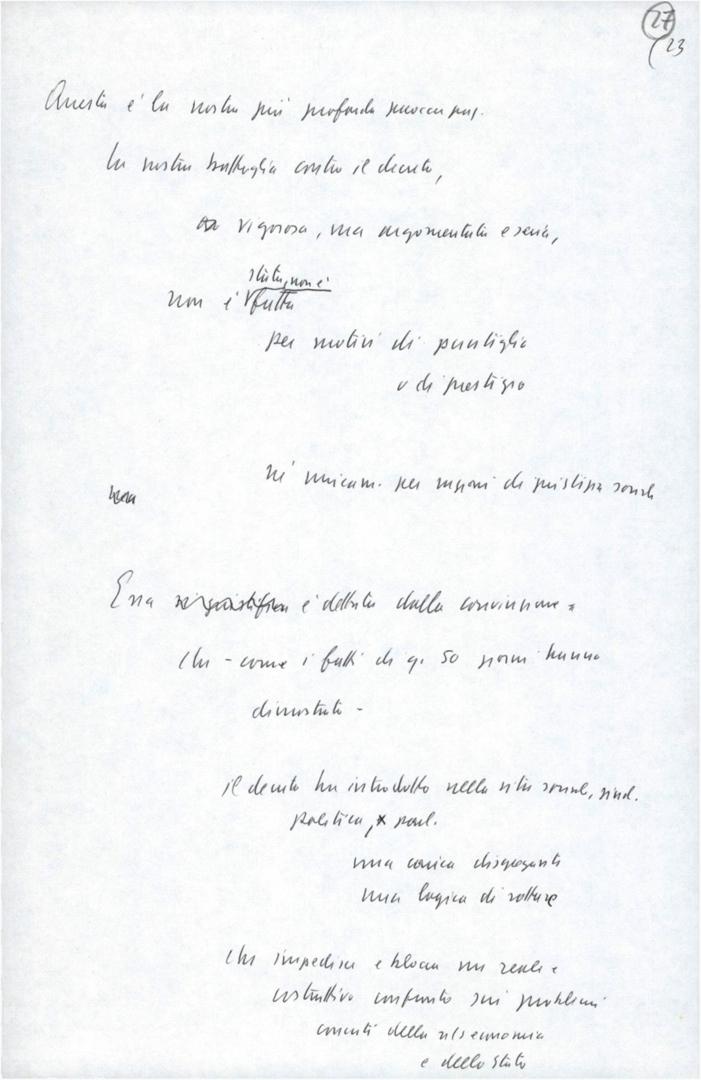 27
23
Questa è la nostra più profonda preoccup.
La nostra battaglia contro il decreto,
vigorosa, ma argomentata e seria,
stata, non è
non è fatta
per motivi di puntiglio
o di prestigio
né unicam. per ragioni di giustizia sociale
Essa si giustifica è dettata dalla convinzione =
che - come i fatti di q. 50 giorni hanno
dimostrato -
il decreto ha introdotto nella vita sociale, sind.
politica, parl.
una carica disgregante
una logica di rotture
che impedisce e blocca un reale e
costruttivo confronto sui problemi
concreti della n/s economia
e dello Stato